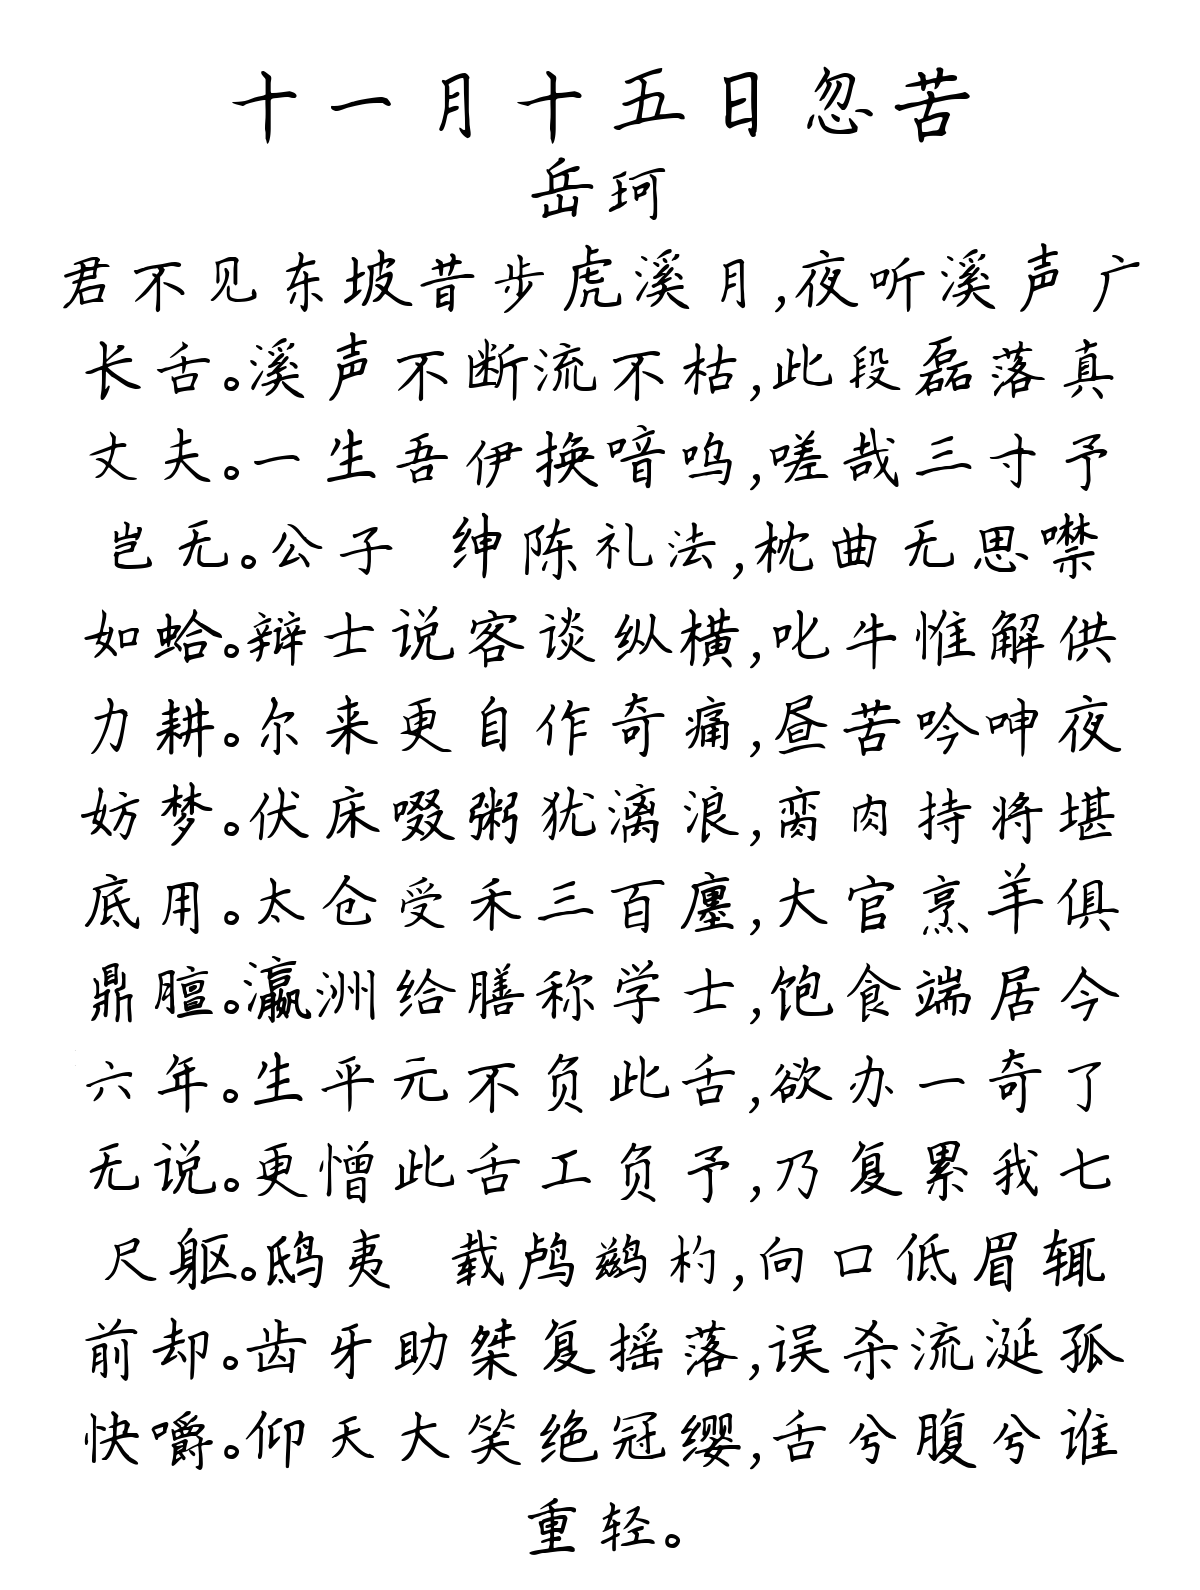 十一月十五日忽苦
岳珂
君不见东坡昔步虎溪月,夜听溪声广
长舌。溪声不断流不枯,此段磊落真
丈夫。一生吾伊换喑呜,嗟哉三寸予
岂无。公子 绅陈礼法,枕曲无思噤
如蛤。辩士说客谈纵横,叱牛惟解供
力耕。尔来更自作奇痛,昼苦吟呻夜
妨梦。伏床啜粥犹漓浪,脔肉持将堪
底用。太仓受禾三百廛,大官烹羊俱
鼎膻。瀛洲给膳称学士,饱食端居今
六年。生平元不负此舌,欲办一奇了
无说。更憎此舌工负予,乃复累我七
尺躯。鸱夷 载鸬鹚杓,向口低眉辄
前却。齿牙助桀复摇落,误杀流涎孤
快嚼。仰天大笑绝冠缨,舌兮腹兮谁
重轻。